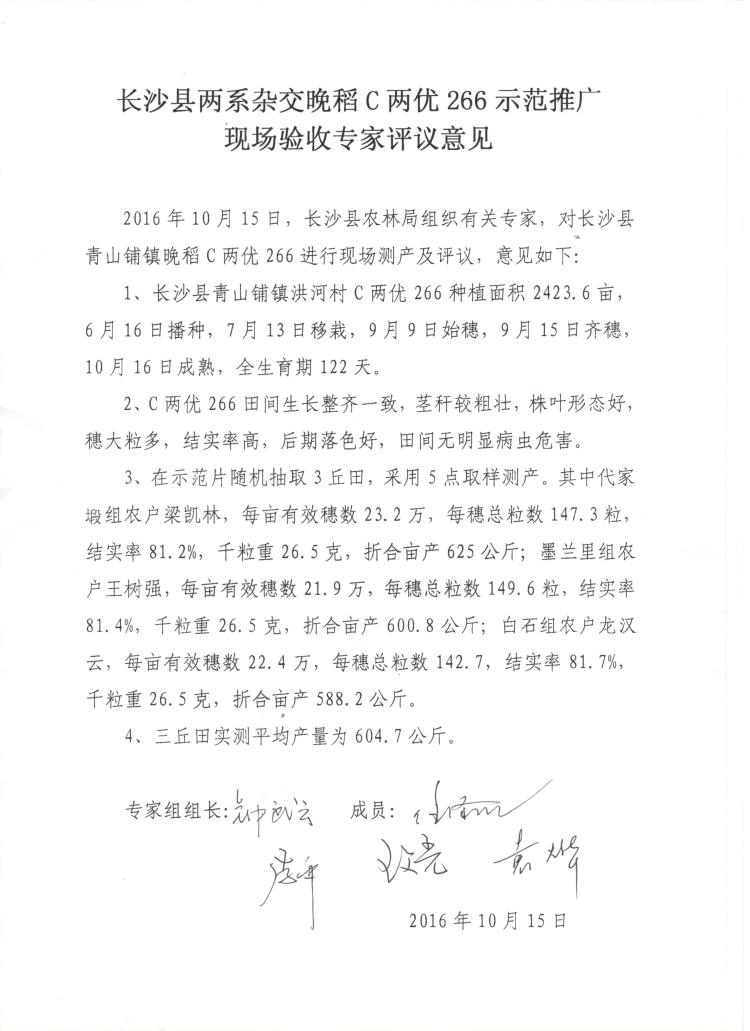 长沙县两系杂交晚稻C两优266示范推广
现场验收专家评议意见
2016年10月15日，长沙县农林局组织有关专家，对长沙县
青山铺镇晚稻C两优266进行现场测产及评议，意见如下：
1、长沙县青山铺镇洪河村C两优266种植面积2423.6亩，
6月16日播种，7月13日移栽，9月9日始穗，9月15日齐穗，
10月16日成熟，全生育期122天。
2、C两优266田间生长整齐一致，茎秆较粗壮，株叶形态好，
穗大粒多，结实率高，后期落色好，田间无明显病虫危害。
3、在示范片随机抽取3丘田，采用5点取样测产。其中代家
塅组农户梁凯林，每亩有效穗数23.2万，每穗总粒数147.3粒，
结实率81.2%，千粒重26.5克，折合亩产625公斤；墨兰里组农
户王树强，每亩有效穗数21.9万，每穗总粒数149.6粒，结实率
81.4%，千粒重26.5克，折合亩产600.8公斤；白石组农户龙汉
云，每亩有效穗数22.4万，每穗总粒数142.7，结实率81.7%，
千粒重26.5克，折合亩产588.2公斤。
4、三丘田实测平均产量为604.7公斤。
专家组组长：钟武云 成员：
2016年10月15日